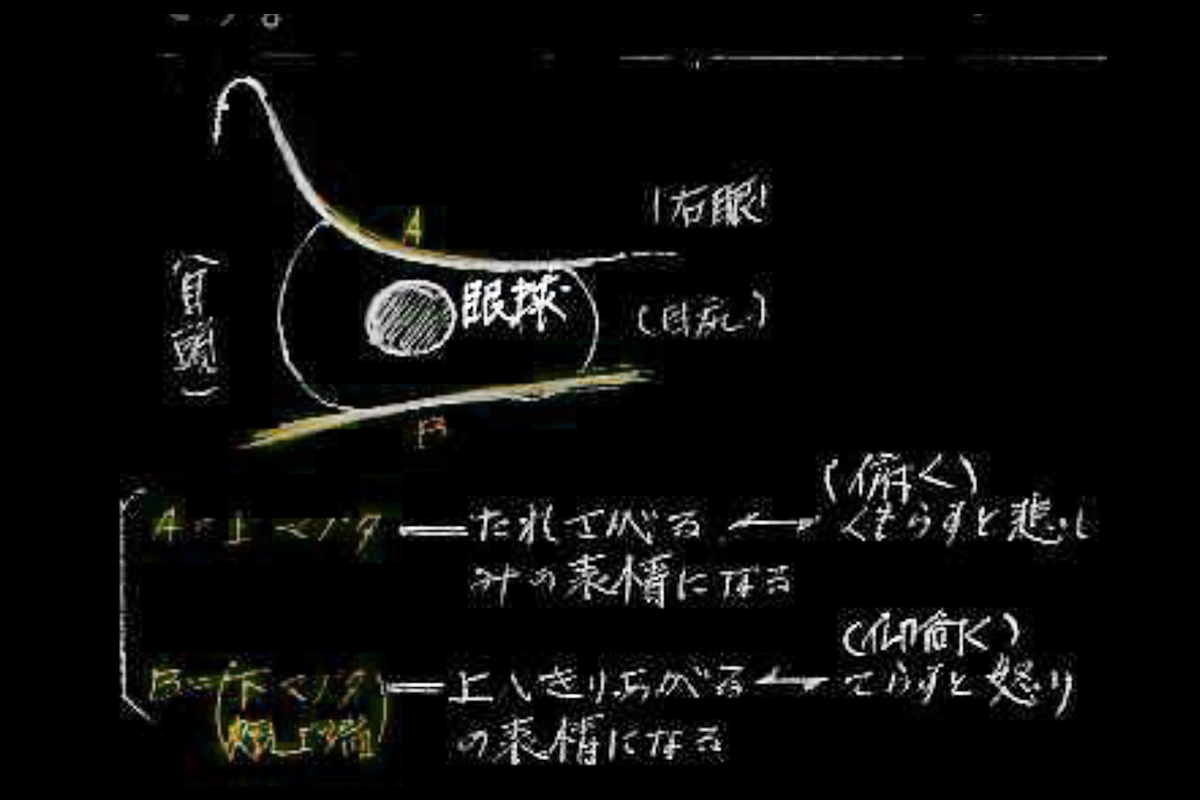 右眼
A
眼球
(目尻)
(目頭)
B
(俯く)
A=上マブタ══たれてさがる ←→ くもらすと悲し
みの表情になる
(仰向く)
B=(下マブタ)══上へきりあがる ←→ てらすと怒り
の表情になる